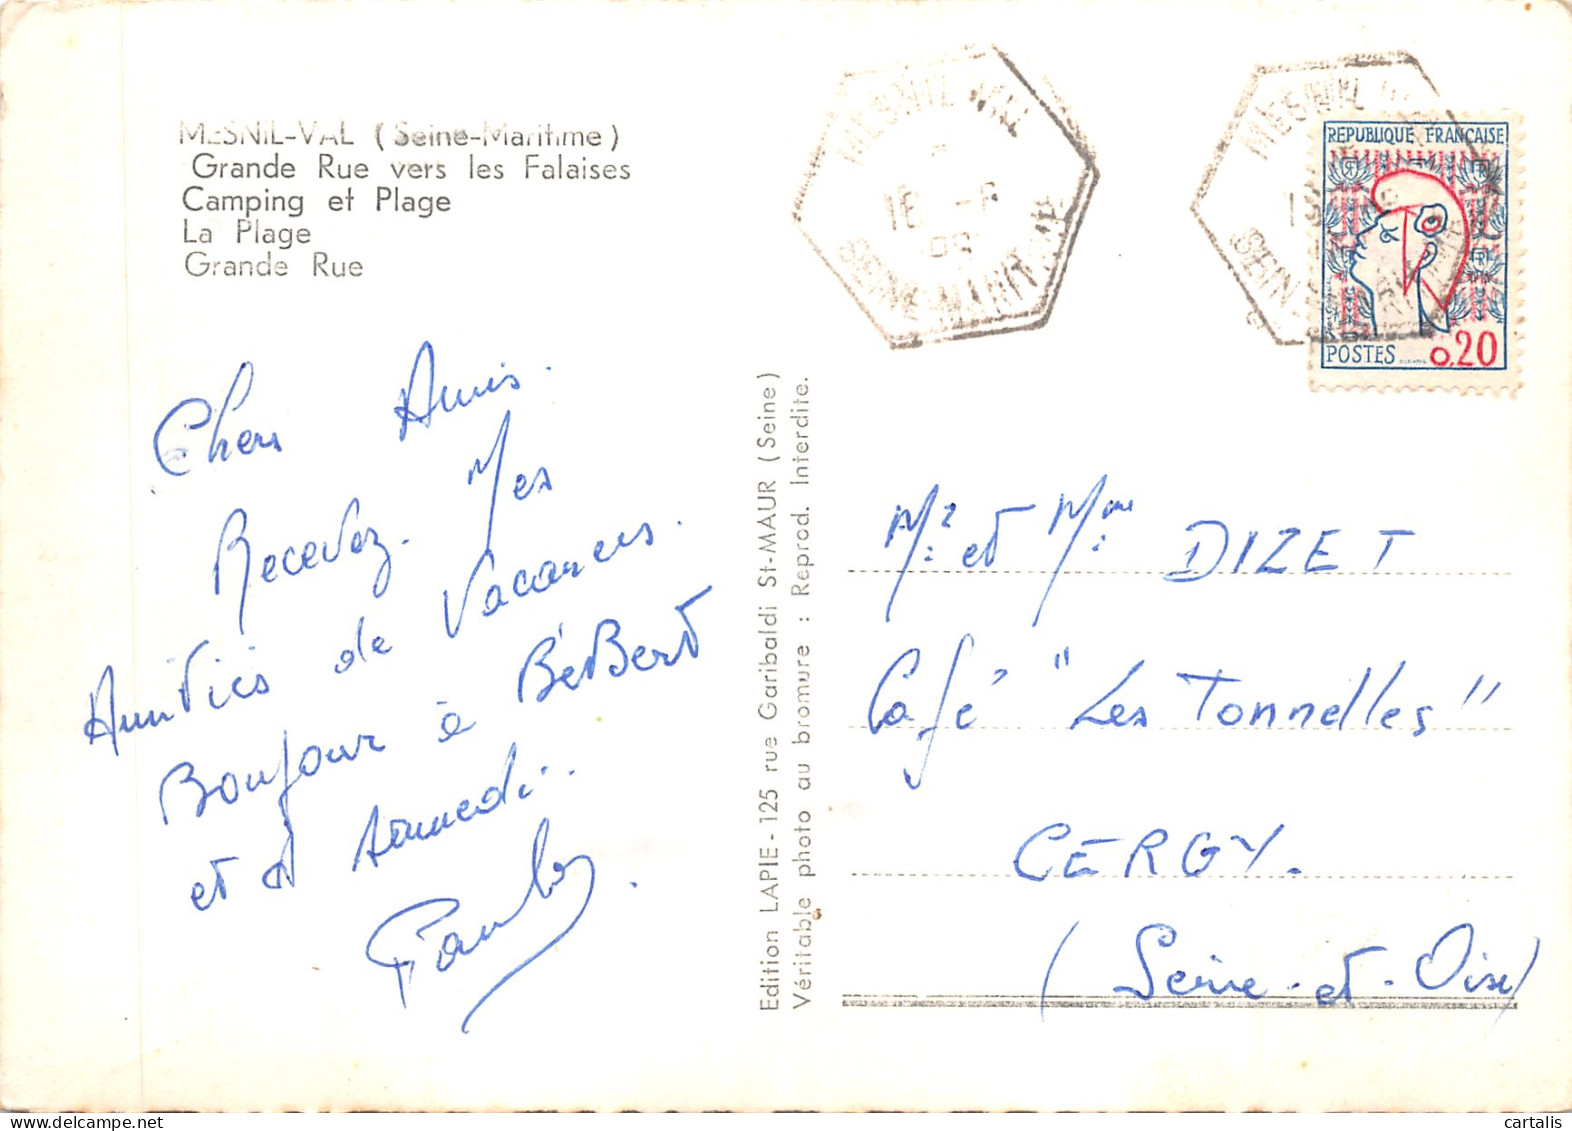 MESNIL-VAL (Seine-Maritime)
Grande Rue vers les Falaises
Camping et Plage
La Plage
Grande Rue
Chers Amis.
Recevez. Mes
Amitiés de Vacances.
Bonjour à BéBert
et à samedi..
Edition LAPIE - 125 rue Garibaldi St-MAUR (Seine)
Véritable photo au bromure : Reprod. Interdite.
MESNIL VAL
16 -
SEINE MARITIME
MESNIL
SEINE-MARITIME
REPUBLIQUE FRANÇAISE
RF
POSTES 0,20
Mr: et Mme: DIZET
Café "Les Tonnelles"
CERGY.
(Seine-et-Oise)
cartalis
www.delcampe.net